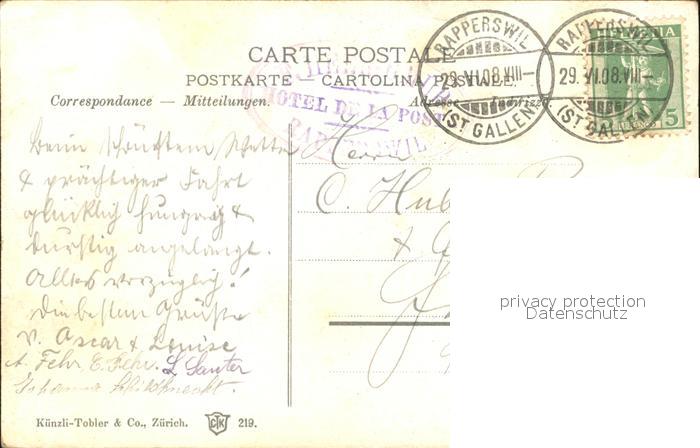 CARTE POSTALE
POSTKARTE – CARTOLINA POSTALE
Correspondance — Mitteilungen.
HOTEL DE LA POSTE
RAPPERSWIL
RAPPERSWIL
29.VI.08.VIII–
(ST GALLEN)
RAPPERSWIL
29.VI.08.VIII–
(ST GALLEN)
HELVETIA
5
Beim schönsten Wetter
& prächtiger Fahrt
glücklich hungrig &
durstig angelangt.
Alles vorzüglich!
Die besten Grüsse
v. Oscar & Louise
A. Fehr E. Fehr. L. Sauter
Johanna Schildknecht.
Herrn
C. Hub
privacy protection
Datenschutz
Künzli-Tobler & Co., Zürich.
CTK
219.